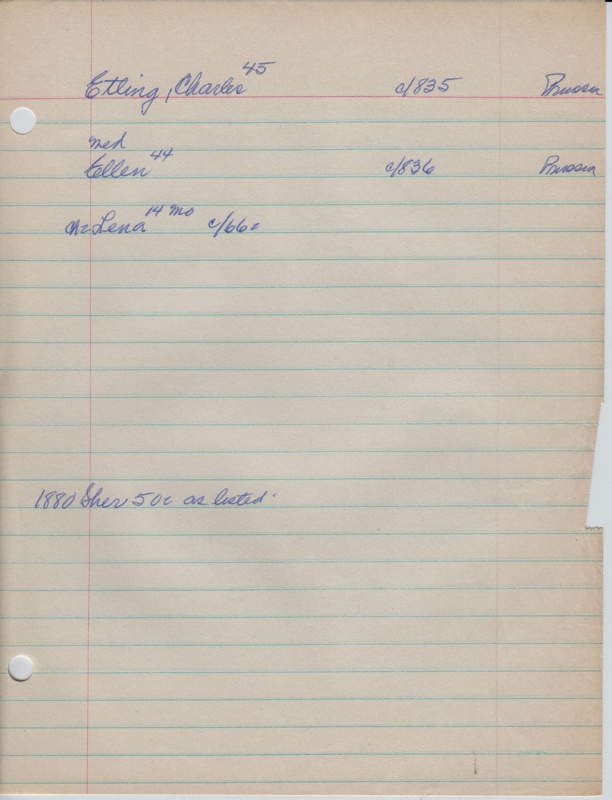 Etling, Charles 45 c/835 Prussia
med
Ellen 44 c/836 Prussia
ch= Lena 14 mo c/66=
1880 Sher 50c as listed.